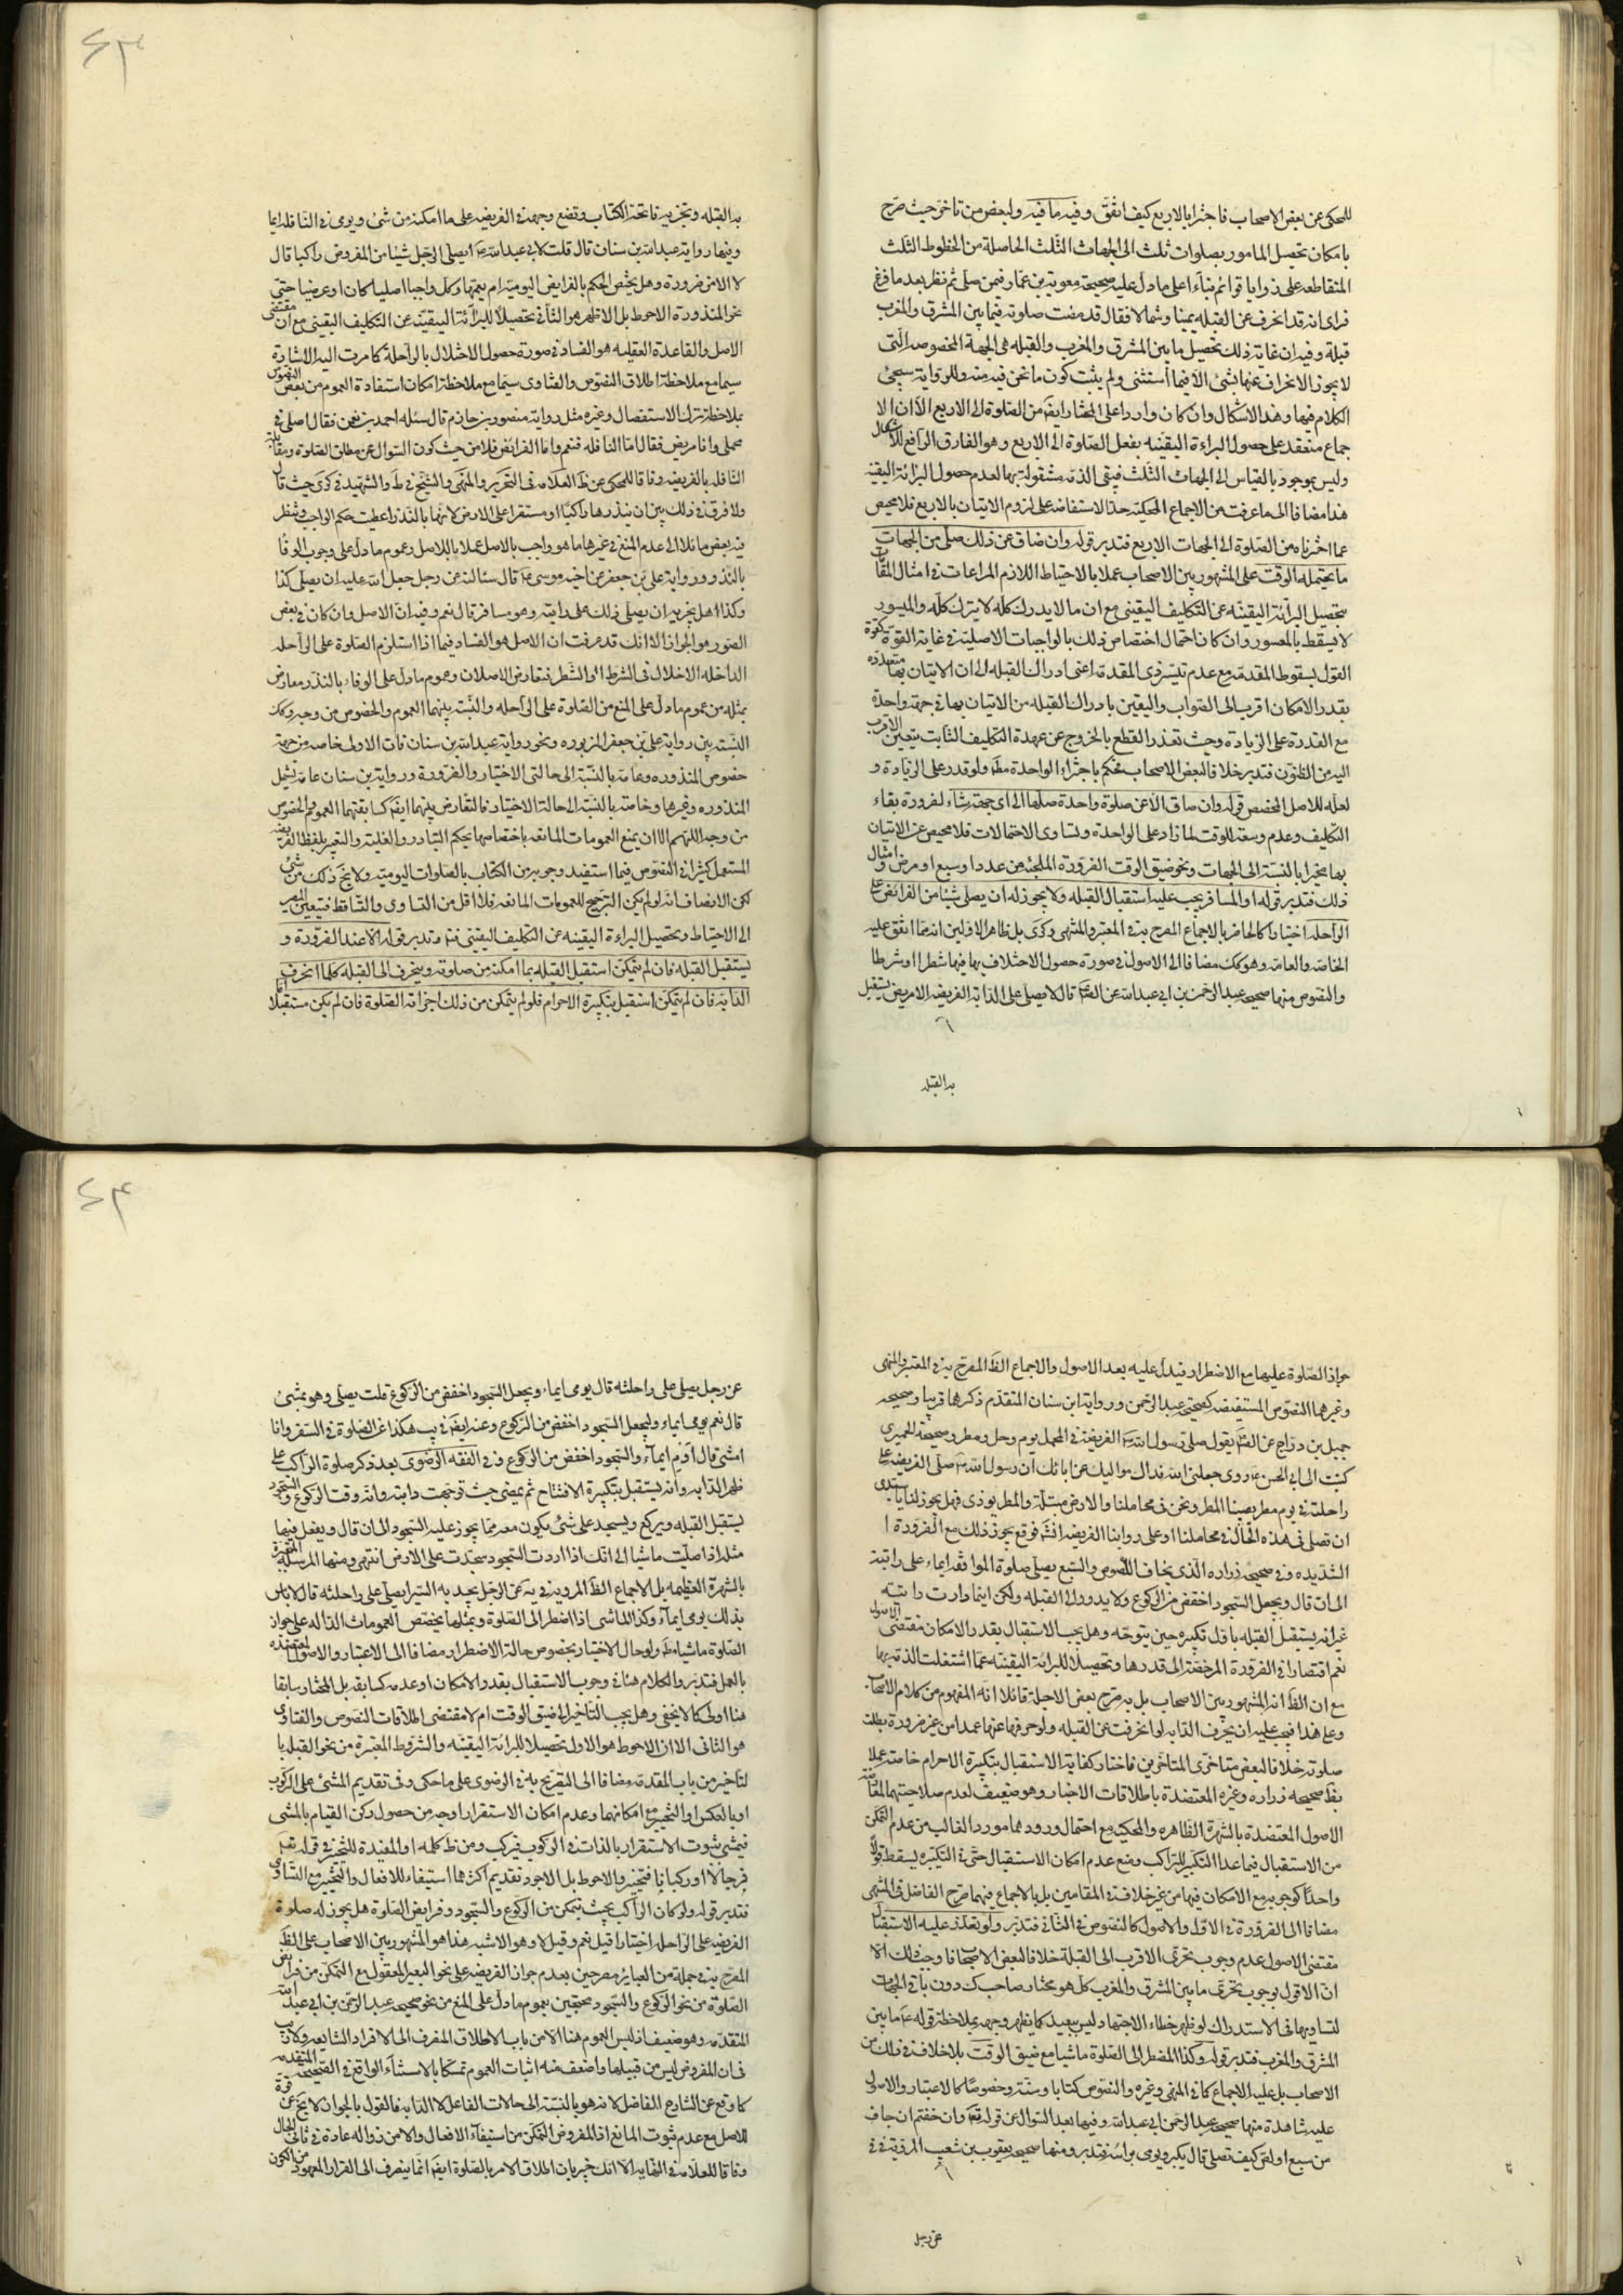 للمحكى عن بعض الاصحاب فاجتزا بالاربع كيف اتفق وفيه ما فيه ولبعض من تاخر حيث صرح
بامكان تحصيل المامور بصلوات ثلث الى الجهات الثلث الحاصلة من الخطوط الثلث
المتقاطعه على زوايا قوائم بناء على ما دل عليه صحيحة معوية بن عمار فيمن صلى ثم نظر بعد ما فرغ
فراى انه قد انحرف عن القبله يمينا وشمالا فقال قد مضت صلوته فيما بين المشرق والمغرب
قبلة وفيه ان غاية ذلك تحصيل ما بين المشرق والمغرب والقبله هى الجهة المخصوصه التى
لا يجوز الانحراف عنها بشئ الا فيما استثنى ولم يثبت كون ما نحن فيه منه وللرواية سيجئ
الكلام فيها وهذا الاشكال وان كان واردا على المختار ايضا من الصلوة الى الاربع الا ان الا
جماع منعقد على حصول البراءة اليقينيه بفعل الصلوة الى الاربع وهو الفارق الرافع للاشكال
وليس بموجود بالقياس الى الجهات الثلث فيبقى الذمه مشغولة بها لعدم حصول البرائة اليقينيه
هذا مضافا الى ما عرفت من الاجماع المحكية حد الاستفاضه على لزوم الاتيان بالاربع فلا محيص
عما اخترناه من الصلوة الى الجهات الاربع فتدبر قوله وان ضاق عن ذلك صلى من الجهات
ما يحتمله الوقت على المشهور بين الاصحاب عملا بالاحتياط اللازم المراعات فى امثال المقام
بتحصيل البرائة اليقينيه عن التكليف اليقينى مع ان ما لا يدرك كله لا يترك كله والميسور
لا يسقط بالمعسور وان كان احتمال اختصاص ذلك بالواجبات الاصلية فى غاية القوة كقوة
القول بسقوط المقدمة مع عدم تيسر ذى المقدمة اعنى ادراك القبله الى ان الاتيان بها متعدده
بقدر الامكان اقرب الى الصواب واليقين بادراك القبله من الاتيان بها فى جهة واحدة
مع القدرة على الزيادة وحيث تعذر القطع بالخروج عن عهدة التكليف الثابت يتعين الاقرب
اليه من الظنون فتدبر خلافا لبعض الاصحاب فحكم باجتزاء الواحدة مط ولو قدر على الزيادة و
لعله للاصل المخصص قوله وان ضاق الا عن صلوة واحدة صلها الى اى جهة شاء لضرورة بقاء
التكليف وعدم وسعة الوقت لما زاد على الواحدة وتساوى الاحتمالات فلا محيص عن الاتيان
بها مخيرا بالنسبة الى الجهات ونحو ضيق الوقت الضرورة الملجئة من عدد او سبع او مرض وامثال
ذلك فتدبر قوله والمسافر يجب عليه استقبال القبله ولا يجوز له ان يصلى شيئا من الفرائض على
الراحله اختيارا كالحاضر بالاجماع المصرح به فى المعتبر والمنتهى وكرى بل ظاهر الاولين انه مما اتفق عليه
الخاصه والعامه وهو كك مضافا الى الاصول فى صورة حصول الاختلاف بها فيهما شطرا او شرطا
والنصوص منها صحيحه عبد الرحمن بن ابى عبد الله عن الصم قال لا يصلى على الدابة الفريضه الا مريض يستقبل
به القبله
به القبله وتجزيه فاتحة الكتاب وتضع وجهه فى الفريضه على ما امكنه من شئ ويومى فى النافله ايما
ومنها رواية عبد الله بن سنان قال قلت لابى عبد الله ايصلى الرجل شيئا من المفروض راكبا قال
لا الا من ضرورة وهل يختص الحكم بالفرايض اليومية ام يعمها وكل واجبا اصليا كان او عرضيا حتى
نحو المنذورة الاحوط بل الاظهر هو الثانى تحصيلا للبرائة اليقينية عن التكليف اليقينى مع ان مقتضى
الاصل والقاعدة العقليه هو الفساد فى صورة حصول الاخلال بالراحلة كما مرت اليه الاشارة
سيما مع ملاحظة اطلاق النصوص والفتاوى سيما مع ملاحظة امكان استفادة العموم من بعض النصوص
بملاحظة ترك الاستفصال وغيره مثل رواية منصور بن حازم قال سئله احمد بن نعمن فقال اصلى فى
محملى وانا مريض فقال اما النافله فنعم واما الفرائض فلا من حيث كون السوال عن مطلق الصلوة ومقابلة
النافله بالفريضه وفاقا للمحكى عن ظ العلامه فى التحرير والمنتهى والشيخ فى ط والشهيد فى كرى حيث قال
ولا فرق فى ذلك بين ان ينذرها راكبا او مستقرا على الارض لانها بالنذر اعطيت حكم الواجب ونظر
فيه بعض مائلا الى عدم المنع فى غيرها ما هو واجب بالاصل عملا بالاصل وعموم ما دل على وجوب الوفا
بالنذر ورواية على بن جعفر عن اخيه موسى ع قال سئالته عن رجل جعل لله عليه ان يصلى كذا
وكذا هل يجزيه ان يصلى ذلك على دابته وهو مسافر قال نعم وفيه ان الاصل وان كان فى بعض
الصور هو الجواز الا انك قد عرفت ان الاصل هو الفساد فيما اذا استلزم الصلوة على الراحله
الداخله الاخلال فى الشرط او الشطر فتعارض الاصلان وعموم ما دل على الوفاء بالنذر معارض
بمثله من عموم ما دل على المنع من الصلوة على الراحله والنسبة بينهما العموم والخصوص من وجه وكك
النسبة بين رواية على بن جعفر المزبوره ونحو رواية عبد الله بن سنان فان الاولى خاصه من جهة
خصوص المنذوره وعامة بالنسبة الى حالتى الاختيار والضرورة ورواية بن سنان عامة تشمل
المنذوره وغيرها وخاصة بالنسبة الى حالة الاختيار فالتعارض بينهما ايضا كسابقتهما العموم والخصوص
من وجه اللهم الا ان يمنع العمومات المانعه باختصاصها بحكم التبادر والغلبة والتعبير بلفظ الفريضه
المستعمل كثيرا فى النصوص فيما استفيد وجوبه من الكتاب بالصلوات اليومية ولا يخ ذلك من شئ
لكن الانصاف انه لو لم يكن الترجيح للعمومات المانعه فلا اقل من التساوى والتساقط فيتعين المصير
الى الاحتياط وتحصيل البراءة اليقينيه عن التكليف اليقينى فتدبر قوله الا عند الضرورة و
يستقبل القبله فان لم يتمكن استقبل القبله بما امكنه من صلوته وينحرف الى القبله كلما انحرف
الدابة فان لم يتمكن استقبل بتكبيرة الاحرام فلو لم يتمكن من ذلك اجزاته الصلوة وان لم يكن مستقبلا
جواز الصلوة عليها مع الاضطرار فيدل عليه بعد الاصول والاجماع الظ المصرح به فى المعتبر والمنتهى
وغيرهما النصوص المستفيضه كصحيحتى عبد الرحمن ورواية ابن سنان المتقدم ذكرهما قريبا وصحيحه
جميل بن دراج عن الصم يقول صلى رسول الله ص الفريضة فى المحمل يوم وحل ومطر وصحيحة الحميرى
كتبت الى ابى الحسن ع روى جعلنى الله فداك مواليك عن ابائك ان رسول الله ص صلى الفريضه على
راحلته فى يوم مطر يصيبنا المطر ونحن فى محاملنا والارض مبتلة والمطر يوذى فهل يجوز لنا يا سيدى
ان نصلى فى هذه الحال فى محاملنا او على دوابنا الفريضه انشاء فوقع يجوز ذلك مع الضرورة ا
الشديده وفى صحيحه زراره الذى يخاف اللصوص والسبع يصلى صلوة المواقفه ايماء على دابته
الى ان قال ويجعل السجود اخفض من الركوع ولا يدور الى القبله ولكن اينما دارت دابته
غير انه يستقبل القبله باول تكبيره حين يتوجه وهل يجب الاستقبال بقدر الامكان مقتضى الاصول
نعم اقتصارا فى الضرورة المرخصة الى قدرها وتحصيلا للبرائة اليقينيه عما اشتغلت الذمه بها
مع ان الظ انه المشهور بين الاصحاب بل به صرح بعض الاجلة قائلا انه المفهوم من كلام الاصحاب
وعلى هذا فيجب عليه ان يحرف الدابه لو انحرفت عن القبله ولو حرفها عنها عمدا من غير ضرورة بطلت
صلوته خلافا لبعض متاخرى المتاخرين فاختار كفاية الاستقبال بتكبيرة الاحرام خاصة عملا
بظ صحيحه زراره وغيره المعتضدة باطلاقات الاخبار وهو ضعيف لعدم صلاحيتها لمقاومة
الاصول المعتضدة بالشهرة الظاهره والمحكيه مع احتمال ورودهما مورد الغالب من عدم التمكن
من الاستقبال فيما عدا التكبير للراكب ومع عدم امكان الاستقبال حتى فى التكبيره يسقط قولا
واحدا كوجوبه مع الامكان فيها من غير خلاف فى المقامين بل بالاجماع فيهما صرح الفاضل فى المنتهى
مضافا الى الضرورة فى الاول والاصول كالنصوص فى الثانى فتدبر ولو تعذر عليه الاستقبال
مقتضى الاصول عدم وجوب تحرى الاقرب الى القبلة خلافا لبعض الاصحاب
ان الاقول بوجوب تحرى ما بين المشرق والمغرب كل هو مختار صاحب ك دون باقى الجهات
لتساويها فى الاستدراك لو ظهر خطاء الاجتهاد وليس ببعيد كما يظهر وجهه بملاحظة قوله ع ما بين
المشرق والمغرب فتدبر قوله وكذا المضطر الى الصلوة ماشيا مع ضيق الوقت بلا خلاف فى ذلك من
الاصحاب بل عليه الاجماع كما فى المنتهى وغيره والنصوص كتابا وسنة وخصوصا كالاعتبار والاصول
عليه شاهدة منها صحيحه عبد الرحمن ابى عبد الله وفيها بعد السوال عن قوله تعه وان خفتم ان خاف
من سبع او لص كيف يصلى قال يكبر ويومى براسه فتدبر ومنها صحيحه يعقوب بن شعيب المروية فى
عن رجل
عن رجل يصلى على راحلته قال يومى ايماء ويجعل السجود اخفض من الركوع قلت يصلى وهو يمشى
قال نعم يومى ايماء وليجعل السجود اخفض من الركوع وعنه ايضا فى يب هكذا عن الصلوة فى السفر وانا
امشى قال اوم ايماء والسجود اخفض من الركوع وفى الفقه الرضوى بعد ذكر صلوة الراكب على
ظهر الدابه وانه يستقبل بتكبيرة الافتتاح ثم يمضى حيث توجهت دابته وانه وقت الركوع والسجود
يستقبل القبله ويركع ويسجد على شئ يكون معه مما يجوز عليه السجود الى ان قال ويفعل فيها
مثله اذا صليت ماشيا الا انك اذا اردت السجود سجدت على الارض انتهى ومنها المرسلة المنجبرة
بالشهرة العظيمه بل الاجماع الظ المروية فى يه عن الرجل يجد به السير ايصلى على راحلته قال لا باس
بذلك يومى ايماء وكذا الماشى اذا اضطر الى الصلوة وبمثلها يخصص العمومات الداله على جواز
الصلوة ماشيا مط ولو حال الاختيار بخصوص حالة الاضطرار مضافا الى الاعتبار والاصول المعتضده
بالعمل فتدبر والكلام هنا فى وجوب الاستقبال بقدر الامكان او عدمه كسابقه بل المختار سابقا
هنا اولى كما لا يخفى وهل يجب التاخير الى ضيق الوقت ام لا مقتضى اطلاقات النصوص والفتاوى
هو الثانى الا ان الاحوط هو الاول تحصيلا للبرائة اليقينيه والشروط المعتبرة من نحو القبله با
لتاخير من باب المقدمة مضافا الى التصريح به فى الرضوى على ما حكى وفى تقديم المشى على الركوب
او بالعكس او التخيير مع امكانهما وعدم امكان الاستقرار اوجه من حصول ركن القيام بالمشى
فيمشى بثبوت الاستقرار بالذات فى الركوب فيركب ومن ظ كلمه او المفيدة للتخيير فى قوله تعه
فرجالا او ركبانا فتخير والاحوط بل الاجود تقديم اكثرهما استيفاء للافعال والتخيير مع التساوى
فتدبر قوله ولو كان الراكب بحيث يتمكن من الركوع والسجود وفرايض الصلوة هل يجوز له صلوة
الفريضه على الراحله اختيارا قيل نعم وقيل لا وهو الاشبه هذا هو المشهور بين الاصحاب على الظ
المصرح به فى جملة من العباير مصرحين بعدم جواز الفريضه على نحو البعير المعقول مع التمكن من فرائض
الصلوة من نحو الركوع والسجود محتجين بعموم ما دل على المنع من نحو صحيحه عبد الرحمن بن ابى عبد الله
المتقدمه وهو ضعيف اذ ليس العموم هنا الا من باب الاطلاق المنصرف الى الافراد الشايعه ولا ريب
فى ان المفروض ليس من قبيلها واضعف منه اثبات العموم تمسكا بالاستثناء الواقع فى الصحيحه المتقدمه
كما وقع عن الشارع الفاضل لانه هو بالنسبة الى حالات الفاعل لا الدابه فالقول بالجواز لا يخ عن قوة
للاصل مع عدم ثبوت المانع اذ المفروض التمكن من استيفاء الافعال والامن من زواله عادة فى ثانى الحال
وفاقا للعلامه فى النهايه الا انك خبير بان اطلاق الامر بالصلوة ايضا انما ينصرف الى القرار المعهود من الكون